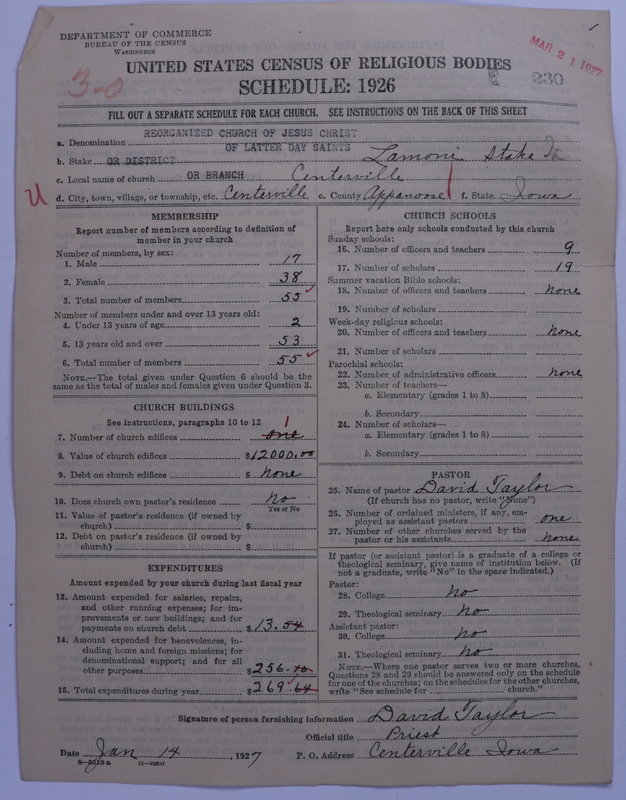 DEPARTMENT OF COMMERCE
BUREAU OF THE CENSUS
WASHINGTON
MAR 21 1927
3-0
230
UNITED STATES CENSUS OF RELIGIOUS BODIES
SCHEDULE: 1926
FILL OUT A SEPARATE SCHEDULE FOR EACH CHURCH. SEE INSTRUCTIONS ON THE BACK OF THIS SHEET
REORGANIZED CHURCH OF JESUS CHRIST
a. Denomination OF LATTER DAY SAINTS
b. Stake OR DISTRICT Lamoni Stake Ia
c. Local name of church OR BRANCH Centerville
U
d. City, town, village, or township, etc. Centerville e. County Appanoose f. State Iowa
MEMBERSHIP
Report number of members according to definition of
member in your church
Number of members, by sex:
1. Male 17
2. Female 38
3. Total number of members 55
Number of members under and over 13 years old:
4. Under 13 years of age 2
5. 13 years old and over 53
6. Total number of members 55
NOTE.—The total given under Question 6 should be the
same as the total of males and females given under Question 3.
CHURCH BUILDINGS
See instructions, paragraphs 10 to 12
7. Number of church edifices one 1
8. Value of church edifices $12000.00
9. Debt on church edifices $ None
10. Does church own pastor's residence No
Yes or No
11. Value of pastor's residence (if owned by
church) $
12. Debt on pastor's residence (if owned by
church) $
EXPENDITURES
Amount expended by your church during last fiscal year
13. Amount expended for salaries, repairs,
and other running expenses; for im-
provements or new buildings; and for
payments on church debt $13.54
14. Amount expended for benevolences, in-
cluding home and foreign missions; for
denominational support; and for all
other purposes $256.10
15. Total expenditures during year $269.64
CHURCH SCHOOLS
Report here only schools conducted by this church
Sunday schools:
16. Number of officers and teachers 9
17. Number of scholars 19
Summer vacation Bible schools:
18. Number of officers and teachers none
19. Number of scholars
Week-day religious schools:
20. Number of officers and teachers none
21. Number of scholars
Parochial schools:
22. Number of administrative officers none
23. Number of teachers—
a. Elementary (grades 1 to 8)
b. Secondary
24. Number of scholars—
a. Elementary (grades 1 to 8)
b. Secondary
PASTOR
25. Name of pastor David Taylor
(If church has no pastor, write "None")
26. Number of ordained ministers, if any, em-
ployed as assistant pastors one
27. Number of other churches served by the
pastor or his assistants none
If pastor (or assistant pastor) is a graduate of a college or
theological seminary, give name of institution below. (If
not a graduate, write "No" in the space indicated.)
Pastor:
28. College No
29. Theological seminary No
Assistant pastor:
30. College No
31. Theological seminary No
NOTE.—Where one pastor serves two or more churches,
Questions 28 and 29 should be answered only on the schedule
for one of the churches; on the schedules for the other churches,
write "See schedule for church."
Signature of person furnishing information David Taylor
Official title Priest
Date Jan 14, 1927 P. O. Address Centerville Iowa